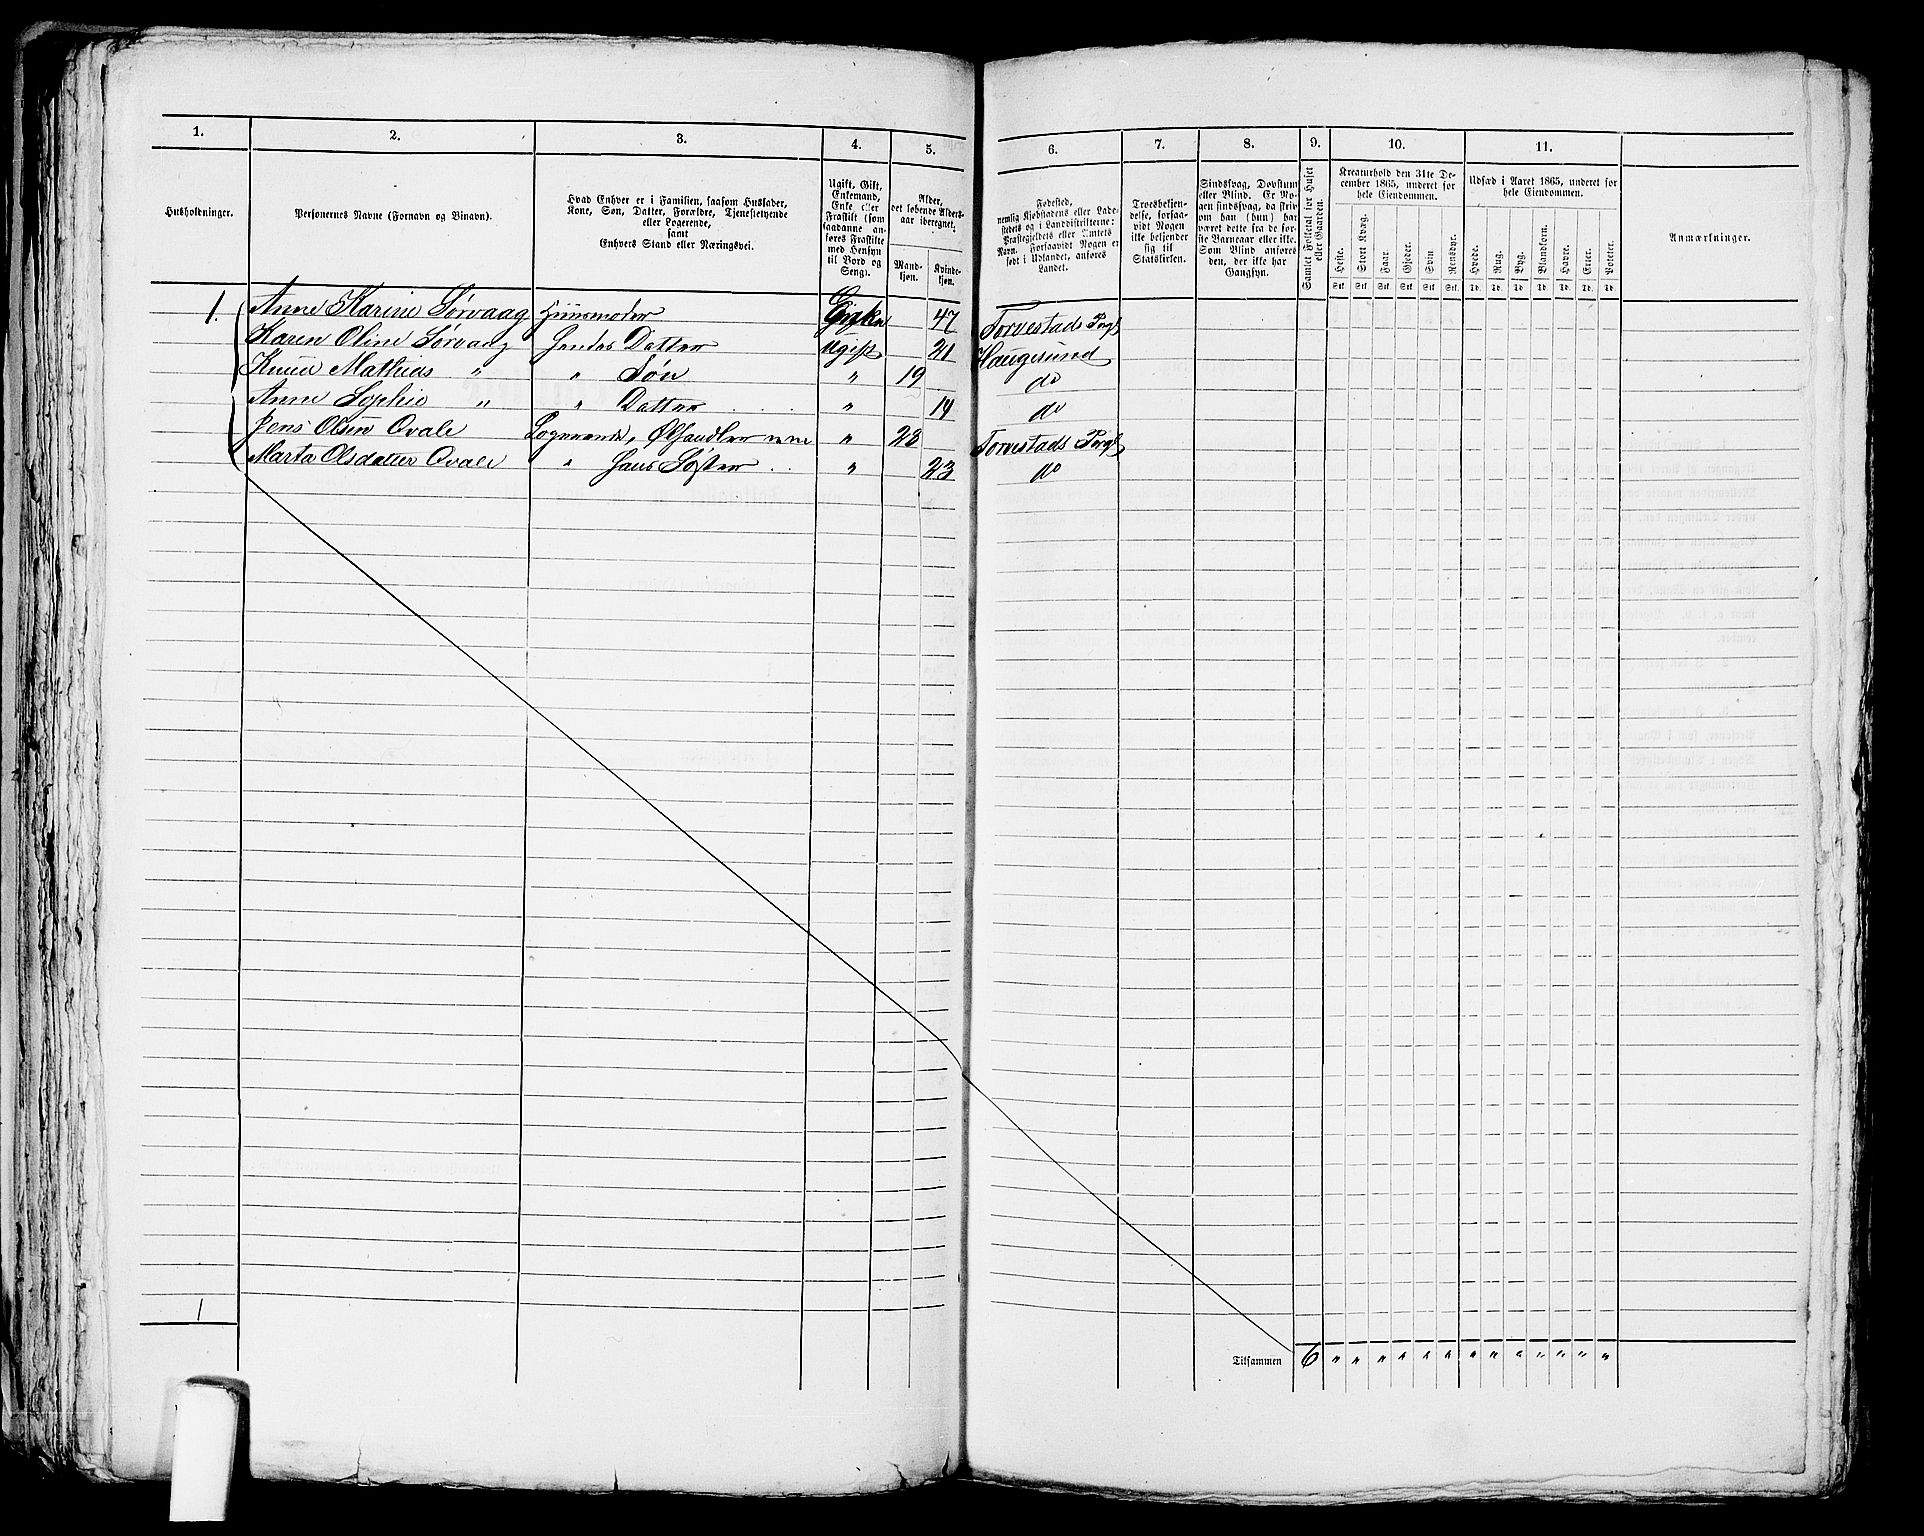 1. 2. 3. 4. 5. 6. 7. 8. 9. 10. 11.
Husholdninger.
Personernes Navne (Fornavn og Binavn).
Hvad Enhver er i Familien, saasom Husfader,
Kone, Søn, Datter, Forældre, Tjenestetyende
eller Logerende,
samt
Enhvers Stand eller Næringsvei.
Ugift, Gift,
Enkemand,
Enke eller
Fraskilt (som
saadanne an-
føres Fraskilte
med Hensyn
til Bord og
Seng).
Alder,
det løbende Alders-
aar iberegnet;
Mand-
kjøn.
Kvinde-
kjøn.
Fødested,
nemlig Kjøbstadens eller Lade-
stedets og i Landdistrikterne:
Præstegjeldets eller Amtets
Navn. Forsaavidt Nogen er
født i Udlandet, anføres
Landet.
Troesbekjen-
delse, forsaa-
vidt Nogen
ikke bekjender
sig
til
Statskirken.
Sindssvag, Døvstum
eller Blind. Er No-
gen sindssvag, da skri-
ves om han (hun) har
været dette fra de før-
ste Barneaar eller ikke.
Som Blind anføres
den, der ikke har
Gangsyn.
Samlet Folketal for Huset
eller Gaarden.
Kreaturhold den 31te De-
cember 1865, underet for
hele Eiendommen.
Heste. Stort Kvæg. Faar. Gjeder. Svin Rensdyr.
Stk. Stk. Stk. Stk. Stk. Stk.
Udsæd i Aaret 1865, underet for
hele Eiendommen.
Hvede. Rug. Byg. Blandkorn. Havre. Erter. Poteter.
Td. Td. Td. Td. Td. Td. Td.
Anmærkninger.
1. Anne Karine Sørvaag Huusmoder Enke 47 Torvestads Prgl
Karen Oline Sørvaag Hendes Datter Ugift 21 Haugesund
Knud Mathias " " Søn " 19 do
Anne Sophie " " Datter " 14 do
Jens Olsen Qvale Logerende, Ølhandler " 28 Torvestads Prgl
Marta Olsdatter Qvale " Hans Søster " 23 do
1
Tilsammen 6 " " " " " " " " " " " " "